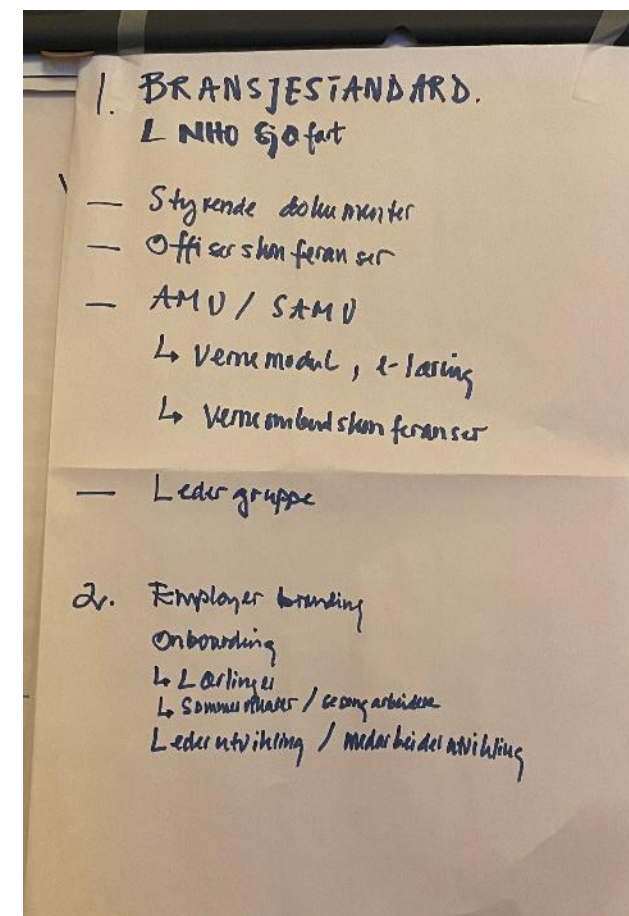 1. BRANSJESTANDARD.
L NHO Sjøfart
— Styrende dokumenter
— Offiserskonferanser
— AMU / SAMU
↳ Vernemodul, e-læring
↳ Verneombudskonferanser
— Ledergruppe
2. Employer branding
Onboarding
↳ Lærlinger
↳ Sommervikarer / sesongarbeidere
Lederutvikling / medarbeiderutvikling